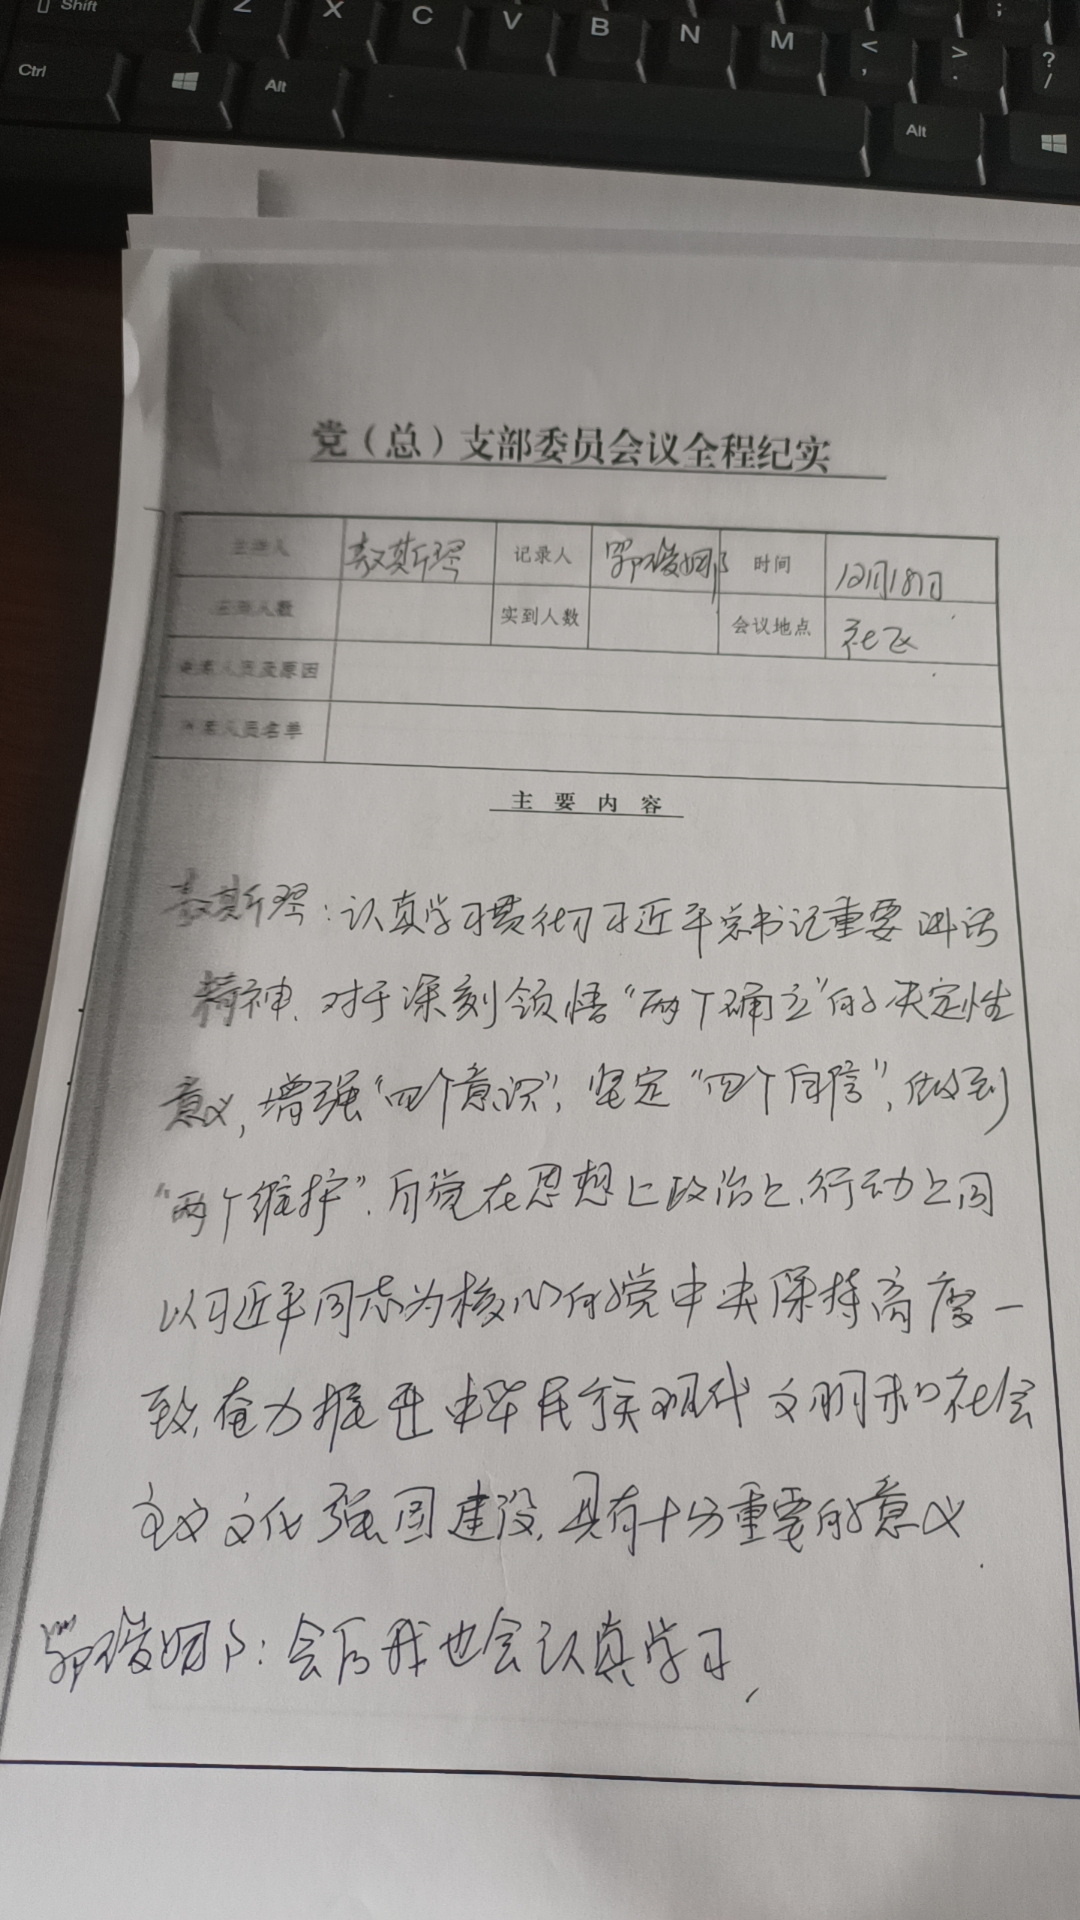 Shift Z X C V B N M < , > . ? / ;
Ctrl Alt Alt
党（总）支部委员会议全程纪实
主持人 敖斯琴 记录人 时间 12月18日
应到人数 实到人数 会议地点 社区
未到人员及原因
人员名单
主要内容
敖斯琴：认真学习贯彻习近平总书记重要讲话
精神、对于深刻领悟“两个确立”的决定性
意义，增强“四个意识”，坚定“四个自信”，做到
“两个维护”、自觉在思想上政治上、行动上同
以习近平同志为核心的党中央保持高度一
致，奋力推进中华民族现代文明和社会
主义文化强国建设，具有十分重要的意义
：会后我也会认真学习，